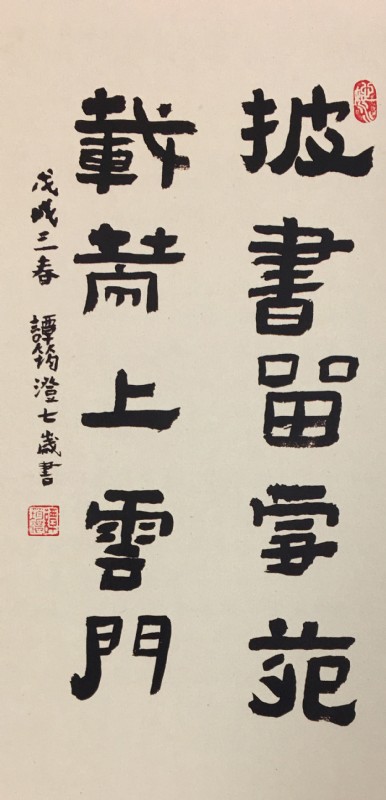 披書留苑
載上雲門
戊戌三春 譚筠澄七歲書